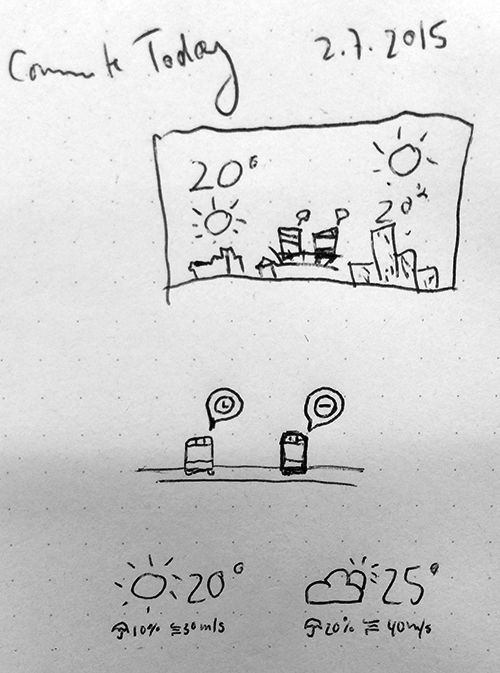 Commute Today 2.7.2015
20°
20°
20° 25°
10% 30m/s 20% 40m/s